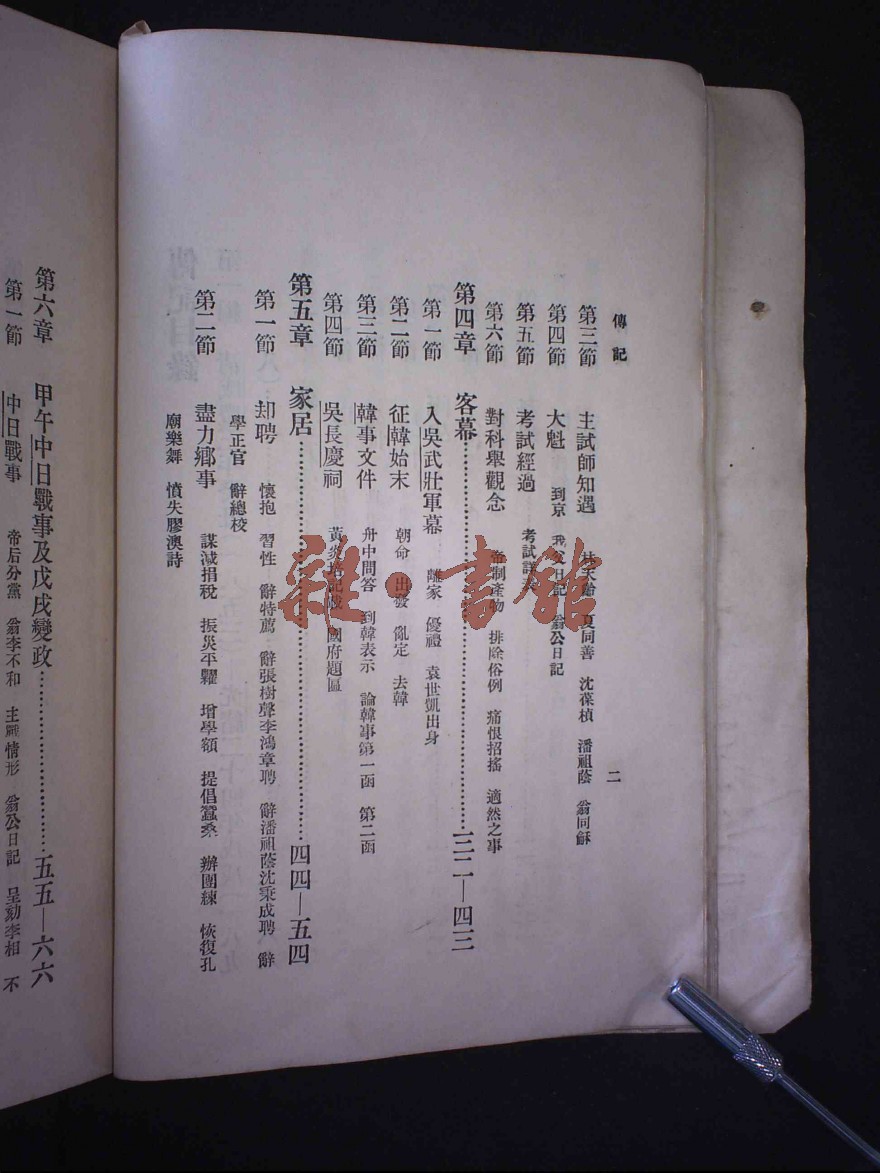 傳記
二
第三節 主試師知遇 林天齡 夏同善 沈葆楨 潘祖蔭 翁同龢
第四節 大魁 到京 我公日記 翁公日記
第五節 考試經過 考試詳
第六節 對科舉觀念 帝制產物 排除俗例 痛恨招搖 適然之事
第四章 客幕……三二—四三
第一節 入吳武壯軍幕 離家 優禮 袁世凱出身
第二節 征韓始末 朝命 出發 亂定 去韓
第三節 韓事文件 舟中問答 到韓表示 論韓事第一函 第二函
第四節 吳長慶祠 黃炎培記 國府題區
第五章 家居……四四—五四
第一節 却聘 懷抱 習性 辭特薦 辭張樹聲李鴻章聘 辭潘祖蔭沈秉成聘 辭
學正官 辭總校
第二節 盡力鄉事 謀減捐稅 振災平糶 增學額 提倡蠶桑 辦團練 恢復孔
廟樂舞 憤失膠澳詩
第六章 甲午中日戰事及戊戌變政……五五—六六
第一節 中日戰事 帝后分黨 翁李不和 主戰情形 翁公日記 呈劾李相 不
雜·書館